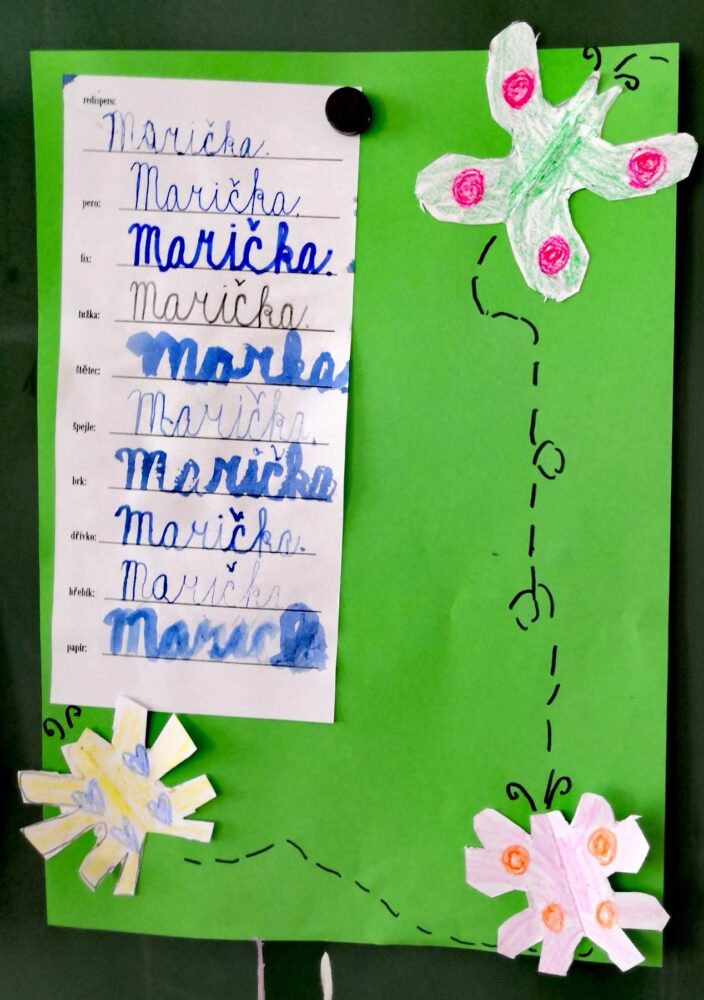 redispero: Marička.
pero: Marička.
fix: Marička.
tužka: Marička.
štětec: Marka
špejle: Marička.
brk: Marička
dřívko: Marička.
hřebík: Marička
papír: